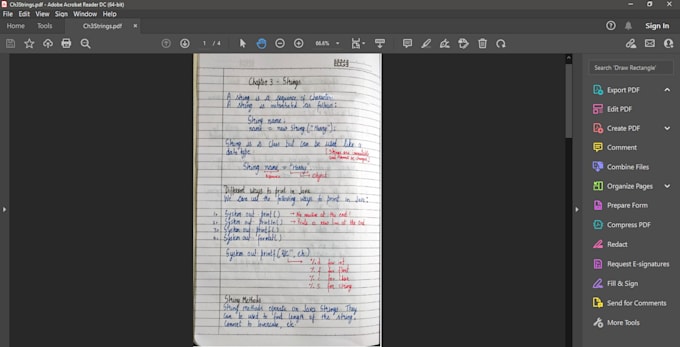 Ch3Strings.pdf - Adobe Acrobat Reader DC (64-bit)
File Edit View Sign Window Help
Home Tools Ch3Strings.pdf × Sign In
1 / 4 66.6%
Chapter 3 - Strings
A string is a sequence of character.
A string is instantiated as follows:
String name;
name = new String("Harry");
String is a class but can be used like a
data type.
Strings are immutable
and cannot be changed
String name = "Harry"
object
Different ways to print in Java
We can use the following ways to print in Java:
1. System.out.print() → No newline at the end
2. System.out.println() → Prints a new line at the end
3. System.out.printf()
4. System.out.format()
System.out.printf("%c", ch)
%d for int
%f for float
%c for char
%s for string
String Methods
String methods operate on Java Strings. They
can be used to find length of the string,
convert to lowercase, etc.
Search 'Draw Rectangle'
Export PDF
Edit PDF
Create PDF
Comment
Combine Files
Organize Pages
Prepare Form
Compress PDF
Redact
Request E-signatures
Fill & Sign
Send for Comments
More Tools